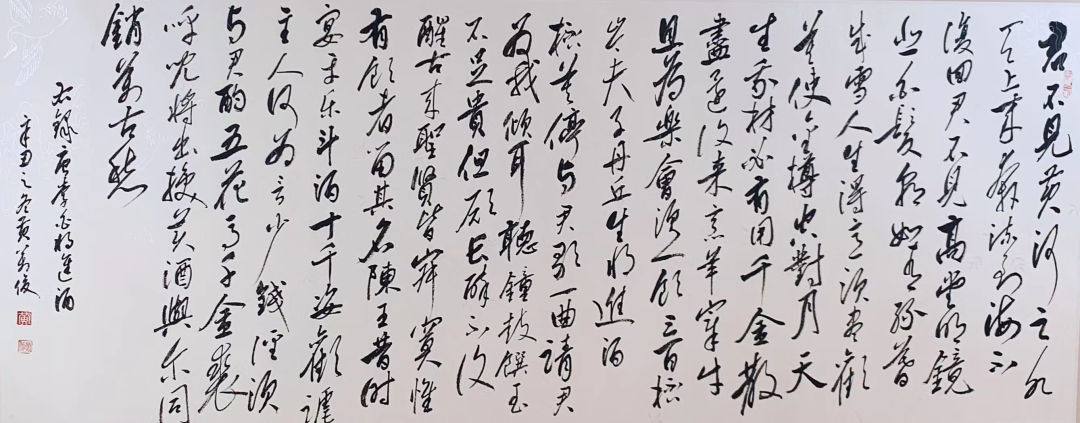 君不見黄河之水
天上来奔流到海不
復回君不見高堂明鏡
悲白髮朝如青絲暮
成雪人生得意須盡歡
莫使金樽空對月天
生我材必有用千金散
盡還復来烹羊宰牛
且為樂會須一飲三百杯
岑夫子丹丘生將進酒
杯莫停與君歌一曲請君
為我傾耳聽鐘鼓饌玉
不足貴但願長醉不復
醒古来聖賢皆寂寞惟
有飲者留其名陳王昔時
宴平乐斗酒十千恣歡謔
主人何為言少錢徑須
与君酌五花馬千金裘
呼児將出換美酒與尔同
銷萬古愁
右錄唐李白將進酒
辛丑之冬黄萬俊